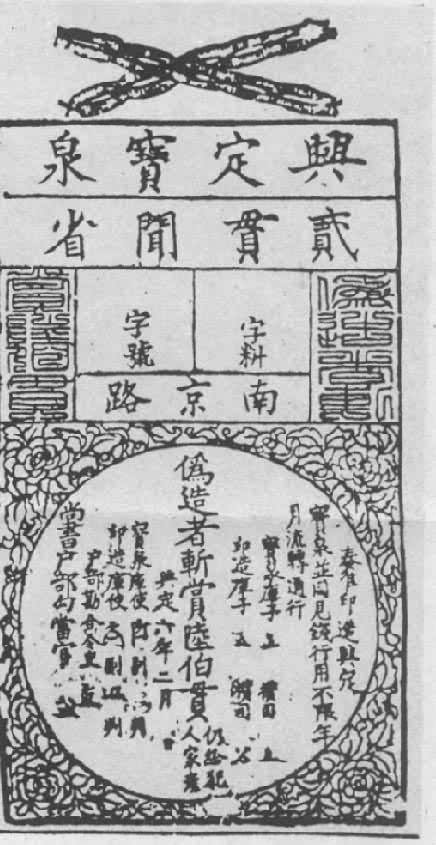 興定寶泉
貳貫聞省
字料
字號
偽造者斬
南京路
奏准印造興定
寶泉並同見錢行用不限年
月流轉通行
寶泉庫子 攢司
印造庫子 攢司
偽造者斬賞陸伯貫
仍給犯
人家產
興定六年二月 日
寶泉庫使 副 判
印造庫使 副 判
尚書戶部勾當官